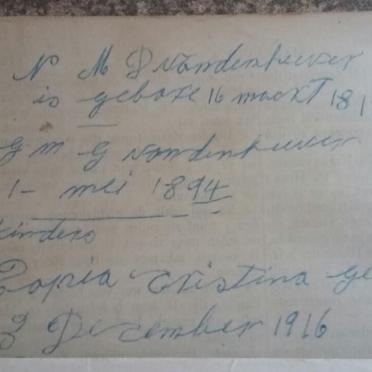 N M D vandenheever
is gebore 16 maert 18
g m G vandenheever
1 - mei 1894
kinders
Sopia Cristina ge
3 December 1916